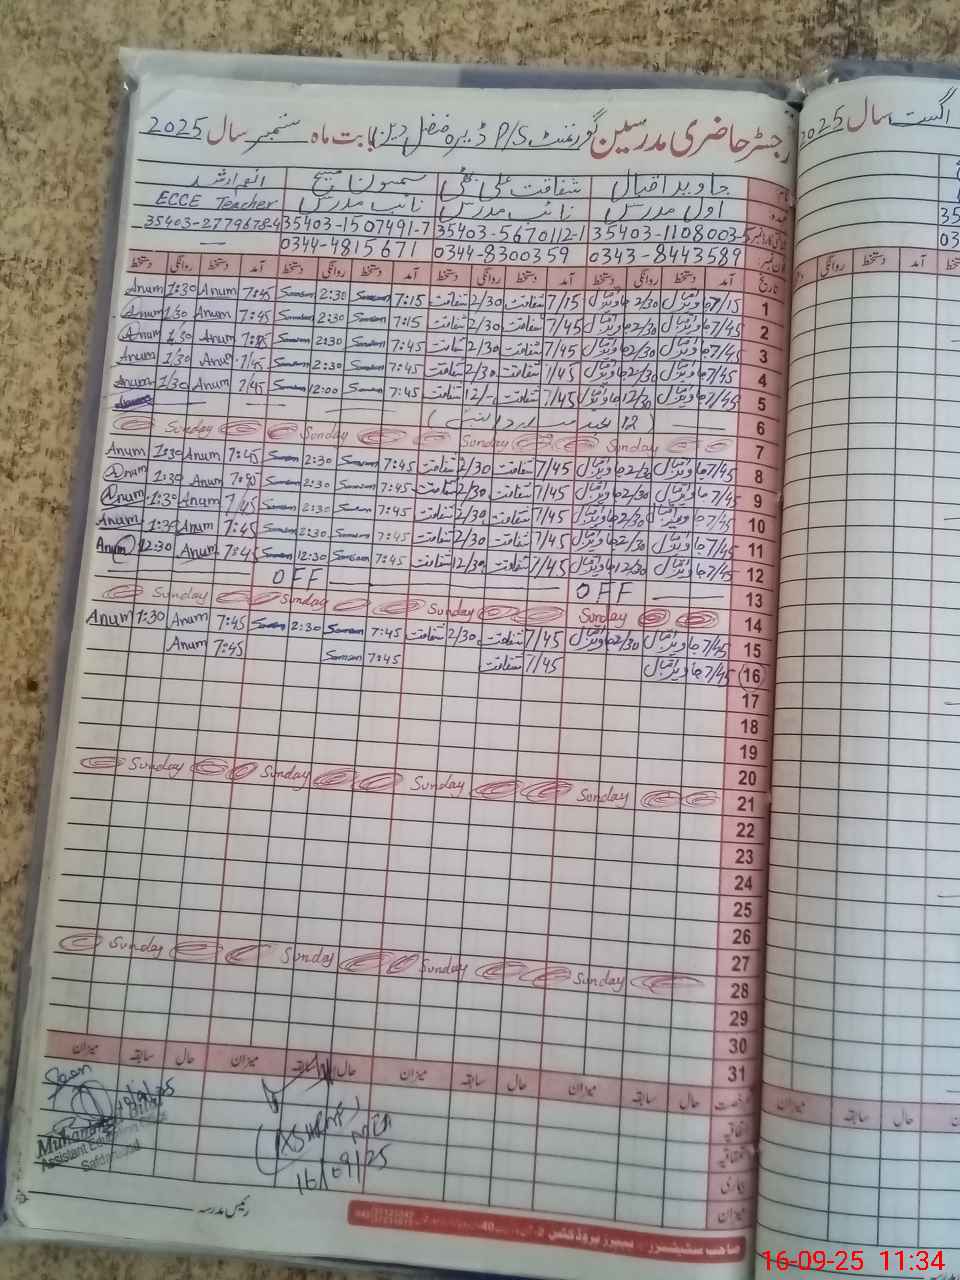 رجسٹر حاضری مدرسین گورنمنٹ P/S ڈیرہ فضل دین بابت ماہ ستمبر سال 2025
اگست سال 2025
نام جاوید اقبال شفاقت علی بھٹی سمسون مسیح انعم ارشد
عہدہ اول مدرس نائب مدرس نائب مدرس ECCE Teacher
35403-1108003-5 35403-5670112-1 35403-1507491-7 35403-2779678-4
0343-8443589 0344-8300359 0344-4815671 —
تاریخ آمد دستخط روانگی دستخط آمد دستخط روانگی دستخط آمد دستخط روانگی دستخط آمد دستخط روانگی دستخط
1 7/15 جاوید اقبال 2/30 جاوید اقبال 7/15 شفاقت 2/30 شفاقت 7:15 Samson 2:30 Samson 7:45 Anum 1:30 Anum
2 7/45 جاوید اقبال 2/30 جاوید اقبال 7/45 شفاقت 2/30 شفاقت 7:15 Samson 2:30 Samson 7:45 Anum 1:30 Anum
3 7/45 جاوید اقبال 2/30 جاوید اقبال 7/45 شفاقت 2/30 شفاقت 7:45 Samson 2:30 Samson 7:45 Anum 1:30 Anum
4 7/45 جاوید اقبال 2/30 جاوید اقبال 7/45 شفاقت 2/30 شفاقت 7:45 Samson 2:30 Samson 7/45 Anum 1/30 Anum
5 7/45 جاوید اقبال 12/30 جاوید اقبال 7/45 شفاقت 12/- شفاقت 7:45 Samson 12:00 Samson 7/45 Anum 1/30 Anum
6 12 عید میلاد النبی
7 Sunday Sunday Sunday Sunday
8 7/45 جاوید اقبال 2/30 جاوید اقبال 7/45 شفاقت 2/30 شفاقت 7:45 Samson 2:30 Samson 7:45 Anum 1:30 Anum
9 7/45 جاوید اقبال 2/30 جاوید اقبال 7/45 شفاقت 2/30 شفاقت 7:45 Samson 2:30 Samson Anum 1:30 Anum
10 7/45 جاوید اقبال 2/30 جاوید اقبال 7/45 شفاقت 2/30 شفاقت 7:45 Samson 2:30 Samson 7/45 Anum 1:30 Anum
11 7/45 جاوید اقبال 2/30 جاوید اقبال 7/45 شفاقت 2/30 شفاقت 7:45 Samson 2:30 Samson 7:45 Anum 1:30 Anum
12 7/45 جاوید اقبال 12/30 جاوید اقبال 7/45 شفاقت 12/30 شفاقت 7:45 Samson 12:30 Samson 7:45 Anum 12:30 Anum
13 OFF OFF
14 Sunday Sunday Sunday Sunday
15 7/45 جاوید اقبال 2/30 جاوید اقبال 7/45 شفاقت 2/30 شفاقت 7:45 Samson 2:30 Samson 7:45 Anum 1:30 Anum
16 7/45 جاوید اقبال 7/45 شفاقت 7:45 Samson 7:45 Anum
17
18
19
20
21 Sunday Sunday Sunday Sunday
22
23
24
25
26
27
28 Sunday Sunday Sunday Sunday
29
30
31
رخصت حال سابقہ میزان حال سابقہ میزان حال سابقہ میزان حال سابقہ میزان
اتفاقیہ
استحقاقیہ
بیماری
میزان
Seen
Assistant Education Officer
Safdarabad
16/09/25
رئیس مدرسہ
صاحب سٹیشنرز پیپرز پروڈکشن
16-09-25 11:34